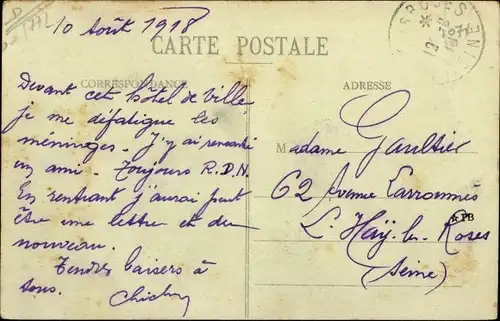 10 Août 1918
CARTE POSTALE
CORRESPONDANCE
ADRESSE
Devant cet hôtel de Ville
je me défatigue les
méninges. J'y ai rencontré
un ami. Toujours R.D.N.
En rentrant j'aurai peut
être une lettre et du
nouveau.
Tendres baisers à
tous.
Madame Gaultier
62 Avenue Larroumès
L'Haÿ-les-Roses
(Seine)
PB